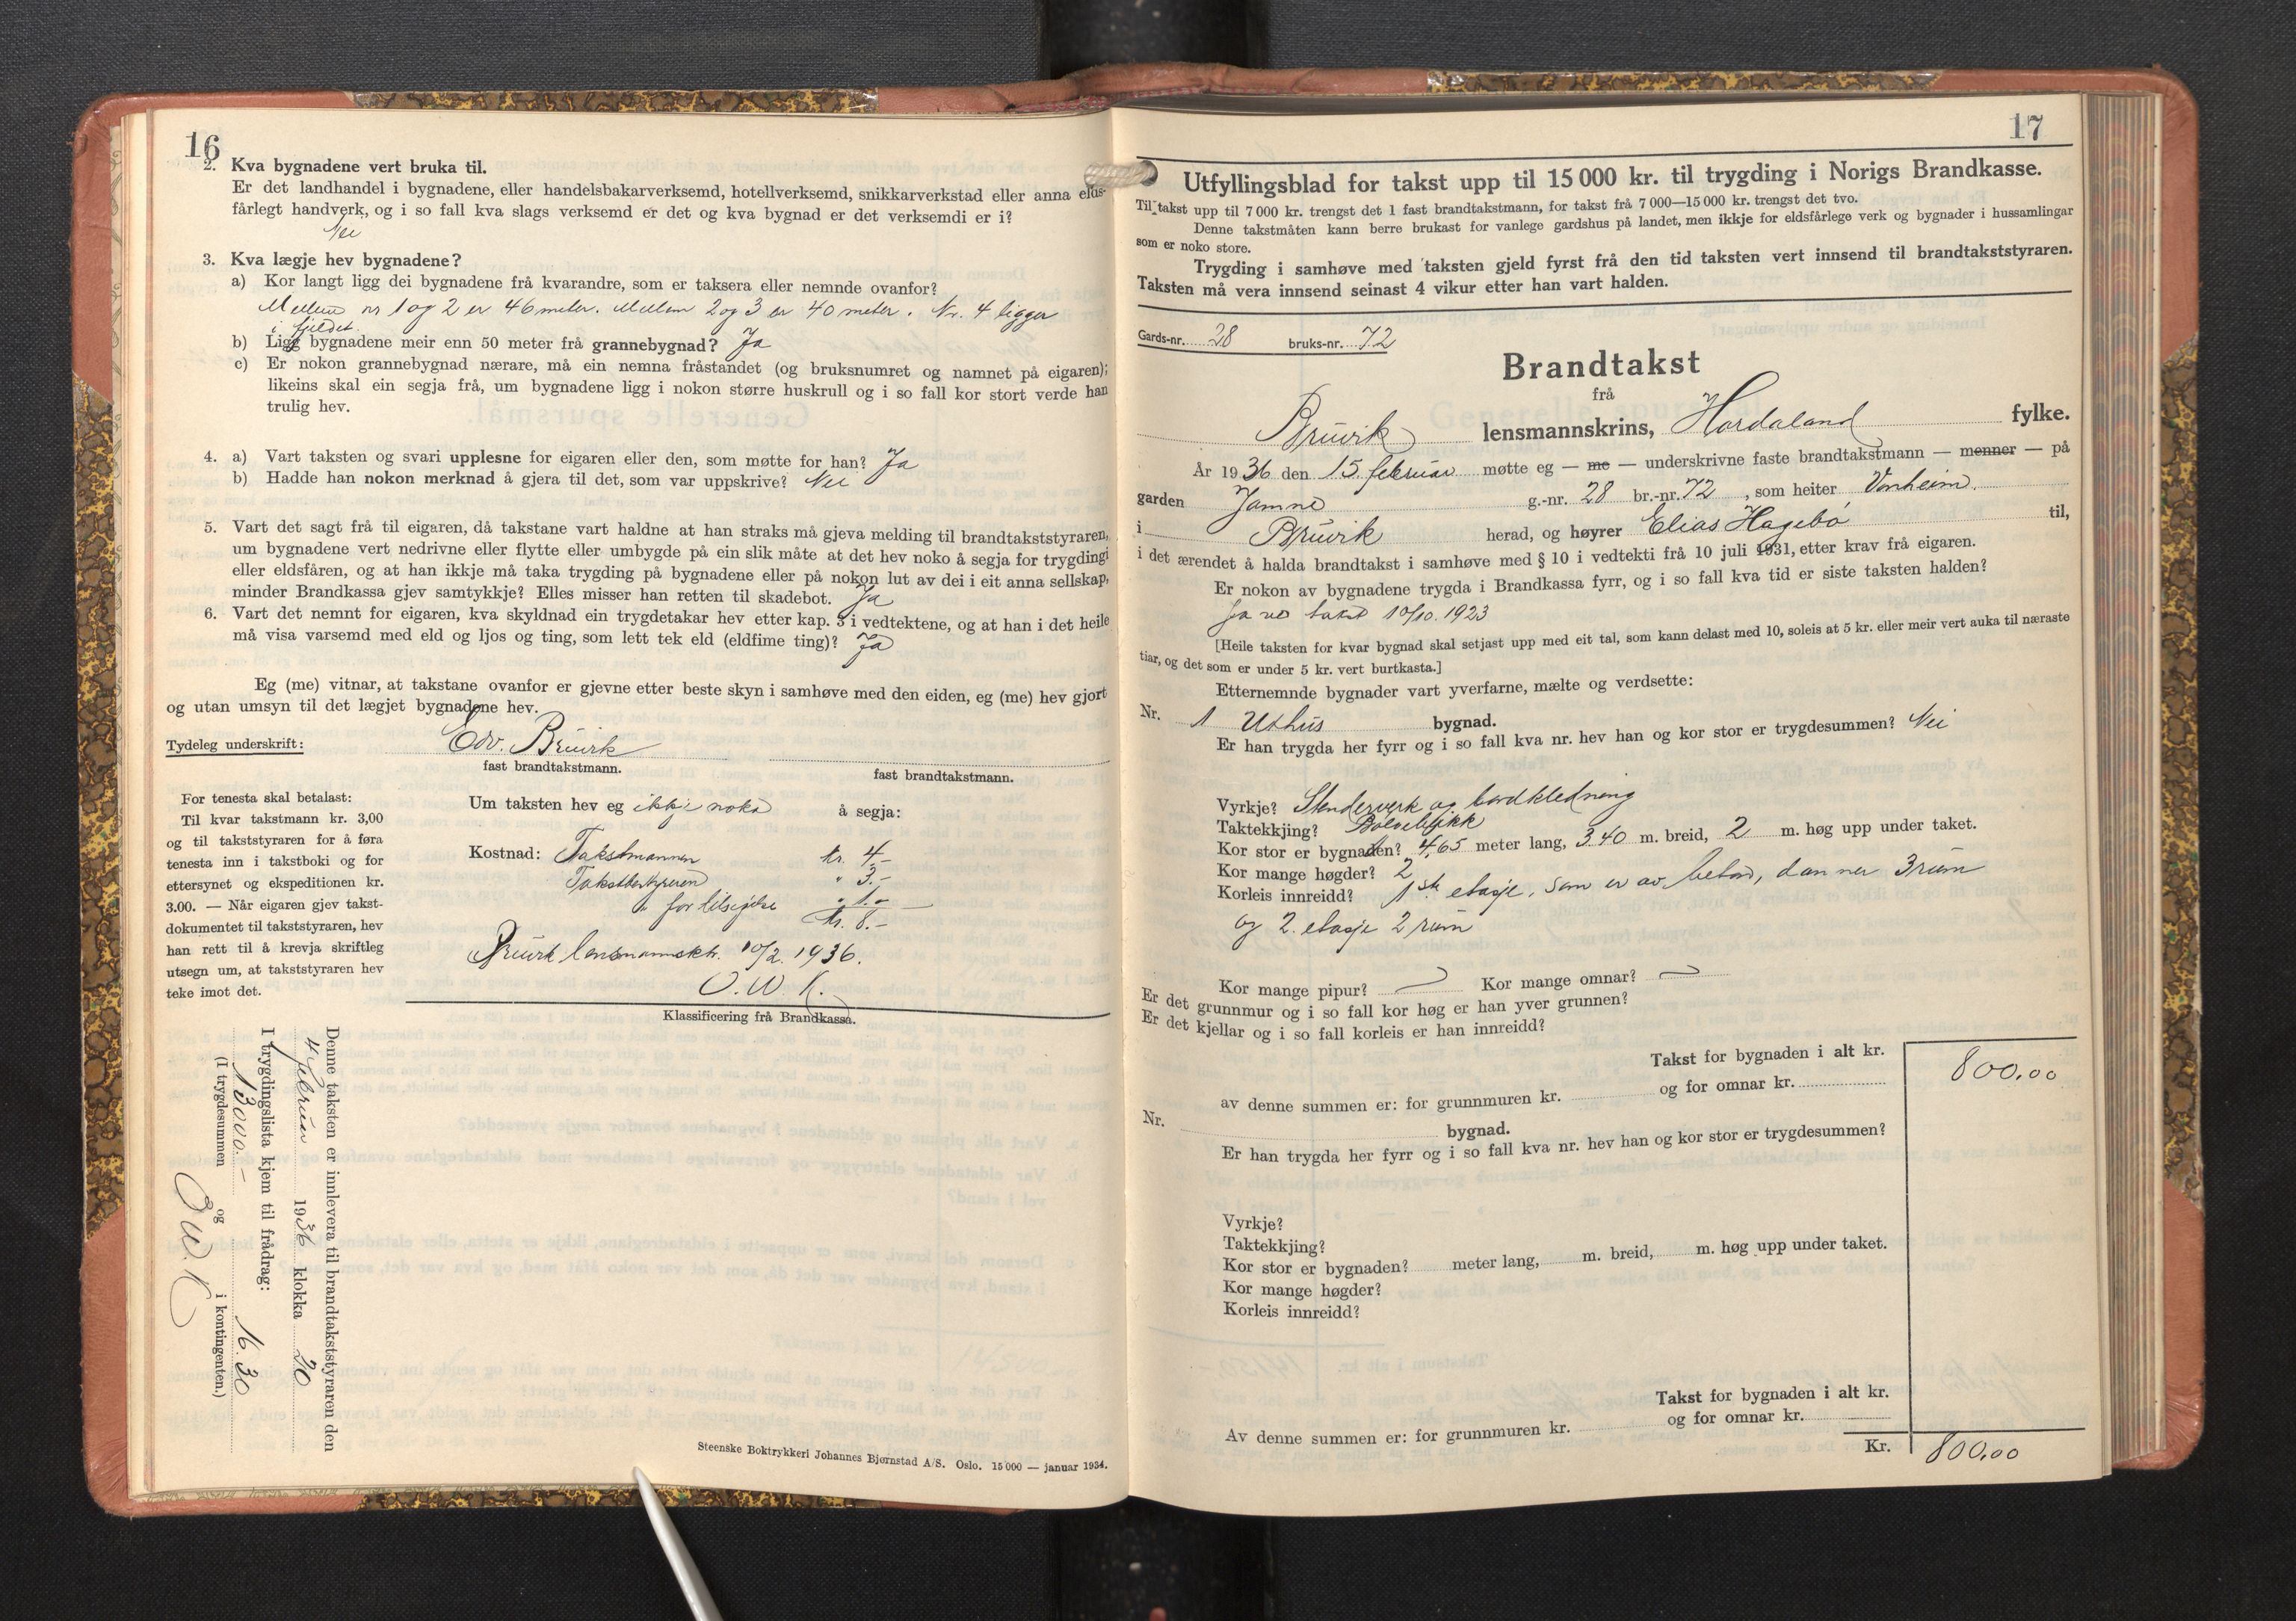 16
2. Kva bygnadene vert bruka til.
Er det landhandel i bygnadene, eller handelsbakarverksemd, hotellverksemd, snikkarverkstad eller anna elds-
fårlegt handverk, og i so fall kva slags verksemd er det og kva bygnad er det verksemdi er i?
Nei
3. Kva lægje hev bygnadene?
a) Kor langt ligg dei bygnadene frå kvarandre, som er taksera eller nemnde ovanfor?
Mellem nr 1 og 2 er 46 meter. Mellem 2 og 3 er 40 meter. Nr. 4 ligger
i fjeldet.
b) Ligg bygnadene meir enn 50 meter frå grannebygnad? Ja
c) Er nokon grannebygnad nærare, må ein nemna fråstandet (og bruksnumret og namnet på eigaren);
likeins skal ein segja frå, um bygnadene ligg i nokon større huskrull og i so fall kor stort verde han
trulig hev.
4. a) Vart taksten og svari upplesne for eigaren eller den, som møtte for han? Ja
b) Hadde han nokon merknad å gjera til det, som var uppskrive? Nei
5. Vart det sagt frå til eigaren, då takstane vart haldne at han straks må gjeva melding til brandtakststyraren,
um bygnadene vert nedrivne eller flytte eller umbygde på ein slik måte at det hev noko å segja for trygdingi
eller eldsfåren, og at han ikkje må taka trygding på bygnadene eller på nokon lut av dei i eit anna sellskap,
minder Brandkassa gjev samtykkje? Elles misser han retten til skadebot. Ja
6. Vart det nemnt for eigaren, kva skyldnad ein trygdetakar hev etter kap. 5 i vedtektene, og at han i det heile
må visa varsemd med eld og ljos og ting, som lett tek eld (eldfime ting)? Ja
Eg (me) vitnar, at takstane ovanfor er gjevne etter beste skyn i samhøve med den eiden, eg (me) hev gjort
og utan umsyn til det lægjet bygnadene hev.
Tydeleg underskrift: Edv. Bruvik
fast brandtakstmann. fast brandtakstmann.
For tenesta skal betalast:
Til kvar takstmann kr. 3,00
og til takststyraren for å føra
tenesta inn i takstboki og for
ettersynet og ekspeditionen kr.
3.00. — Når eigaren gjev takst-
dokumentet til takststyraren, hev
han rett til å krevja skriftleg
utsegn um, at takststyraren hev
teke imot det.
Um taksten hev eg ikkje noko å segja:
Kostnad: Takstmannen kr. 4.-
Takstbestyreren " 3.-
" for tilsigelse " 1.-
kr. 8.-
Bruvik lensmannsktr. 10/2. 1936.
O. W. K.
Klassificering frå Brandkassa.
Denne taksten er innlevera til brandtakststyraren den
4 februar 1936 klokka 20
I trygdingslista kjem til frådrag:
13000.- 16.30
(I trygdesummen og i kontingenten.)
O W. K
Steenske Boktrykkeri Johannes Bjørnstad A/S. Oslo. 15 000 — januar 1934.
17
Utfyllingsblad for takst upp til 15 000 kr. til trygding i Norigs Brandkasse.
Til takst upp til 7 000 kr. trengst det 1 fast brandtakstmann, for takst frå 7 000—15 000 kr. trengst det tvo.
Denne takstmåten kann berre brukast for vanlege gardshus på landet, men ikkje for eldsfårlege verk og bygnader i hussamlingar
som er noko store.
Trygding i samhøve med taksten gjeld fyrst frå den tid taksten vert innsend til brandtakststyraren.
Taksten må vera innsend seinast 4 vikur etter han vart halden.
Gards-nr. 28 bruks-nr. 72
Brandtakst
frå
Bruvik lensmannskrins, Hordaland fylke.
År 1936 den 15. februar møtte eg — me — underskrivne faste brandtakstmann — menner — på
garden Jamne g.-nr. 28 br.-nr. 72, som heiter Vonheim
i Bruvik herad, og høyrer Elias Hagebø til,
i det ærendet å halda brandtakst i samhøve med § 10 i vedtekti frå 10 juli 1931, etter krav frå eigaren.
Er nokon av bygnadene trygda i Brandkassa fyrr, og i so fall kva tid er siste taksten halden?
Ja ved takst 10/10. 1923
[Heile taksten for kvar bygnad skal setjast upp med eit tal, som kann delast med 10, soleis at 5 kr. eller meir vert auka til næraste
tiar, og det som er under 5 kr. vert burtkasta.]
Etternemnde bygnader vart yverfarne, mælte og verdsette:
Nr. 1 Uthus bygnad.
Er han trygda her fyrr og i so fall kva nr. hev han og kor stor er trygdesummen? Nei
Vyrkje? Stenderverk og bordkledning
Taktekkjing? Bølgeblikk
Kor stor er bygnaden? 4,65 meter lang, 3.40 m. breid, 2 m. høg upp under taket.
Kor mange høgder? 2
Korleis innreidd? 1ste etasje, som er av beton, danner 3 rum
og 2. etasje 2 rum
Kor mange pipur? Kor mange omnar?
Er det grunnmur og i so fall kor høg er han yver grunnen?
Er det kjellar og i so fall korleis er han innreidd?
Takst for bygnaden i alt kr. 800,00
av denne summen er: for grunnmuren kr. og for omnar kr.
Nr. bygnad.
Er han trygda her fyrr og i so fall kva nr. hev han og kor stor er trygdesummen?
Vyrkje?
Taktekkjing?
Kor stor er bygnaden? meter lang, m. breid, m. høg upp under taket.
Kor mange høgder?
Korleis innreidd?
Takst for bygnaden i alt kr.
Av denne summen er: for grunnmuren kr. og for omnar kr.
Kr. 800,00